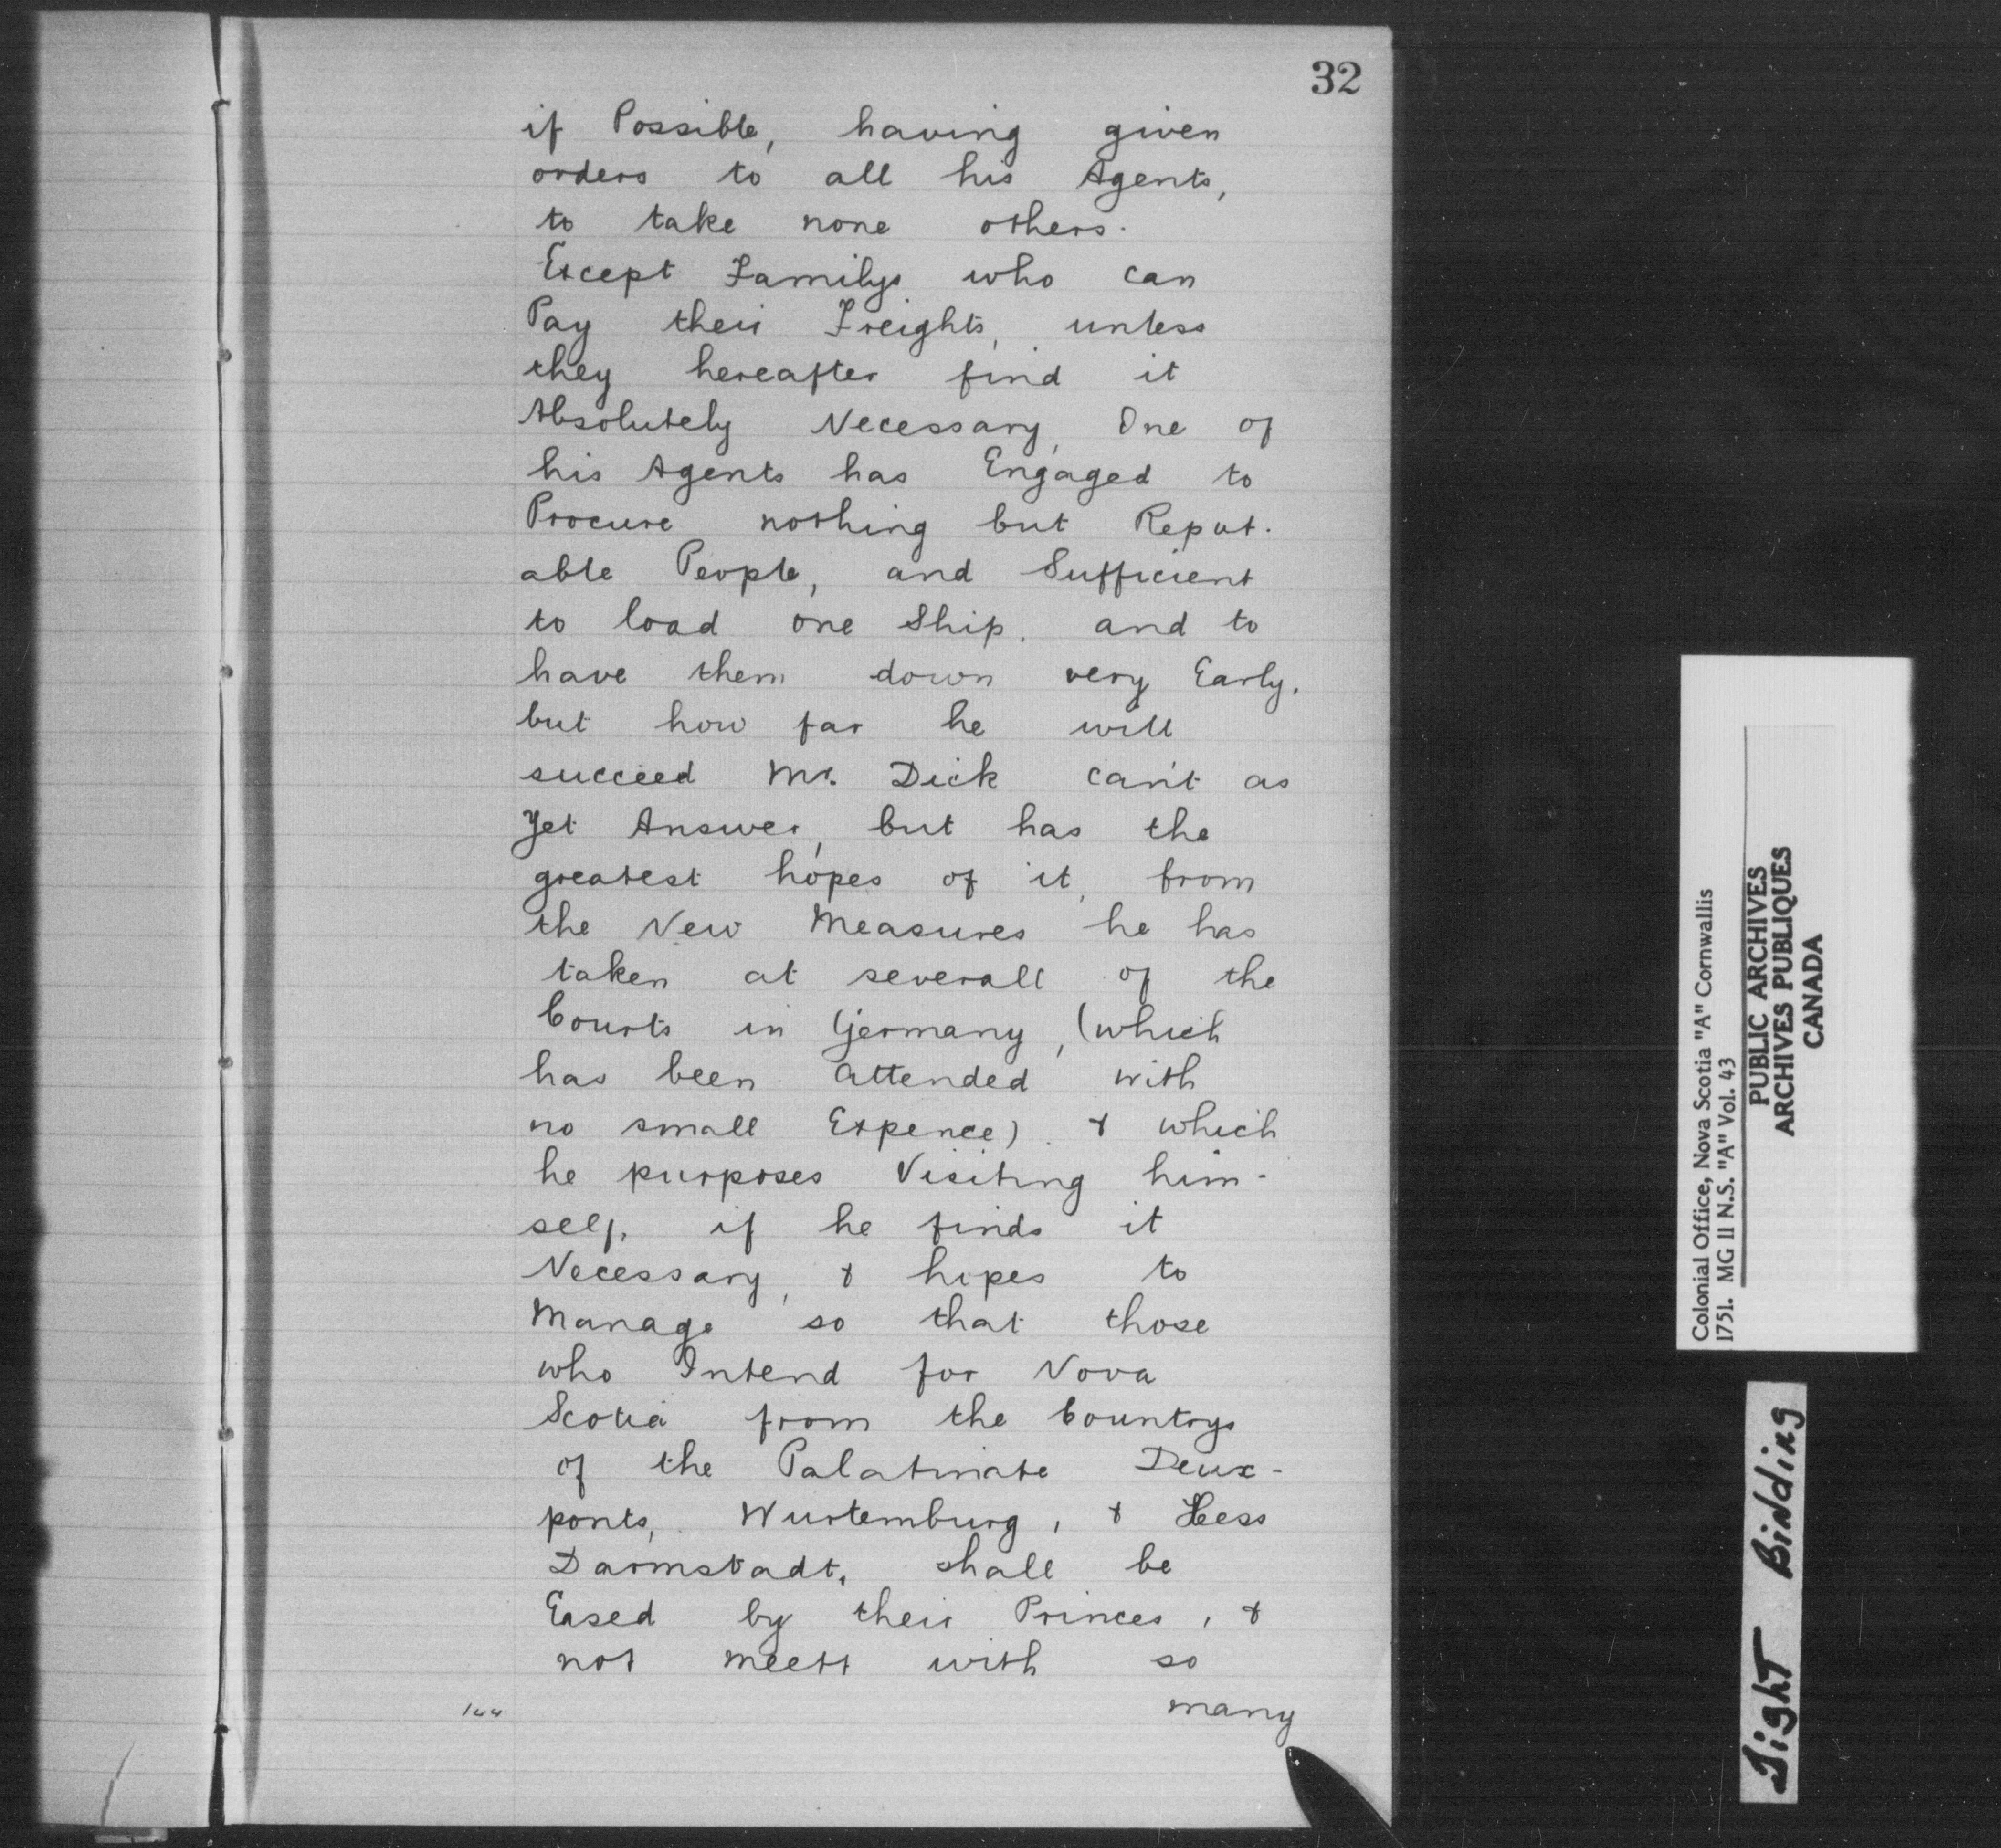 32
if Possible, having given
orders to all his Agents,
to take none others.
Except Familys who can
Pay their Freights, unless
they hereafter find it
Absolutely Necessary, One of
his Agents has Engaged to
Procure nothing but Reput-
able People, and Sufficient
to load one Ship. and to
have them down very Early.
but how far he will
succeed Mr. Dick can't as
Yet Answer, but has the
greatest hopes of it, from
the New Measures he has
taken at severall of the
Courts in Germany, (which
has been attended with
no small Expence). & which
he purposes Visiting him-
self, if he finds it
Necessary, & hopes to
Manage so that those
who Intend for Nova
Scotia from the Countrys
of the Palatinate Deux-
ponts, Wurtemburg, & Hess
Darmstadt, shall be
Eased by their Princes, &
not meett with so
many
Colonial Office, Nova Scotia "A" Cornwallis
1751. MG 11 N.S. "A" Vol. 43
PUBLIC ARCHIVES
ARCHIVES PUBLIQUES
CANADA
Tight Binding